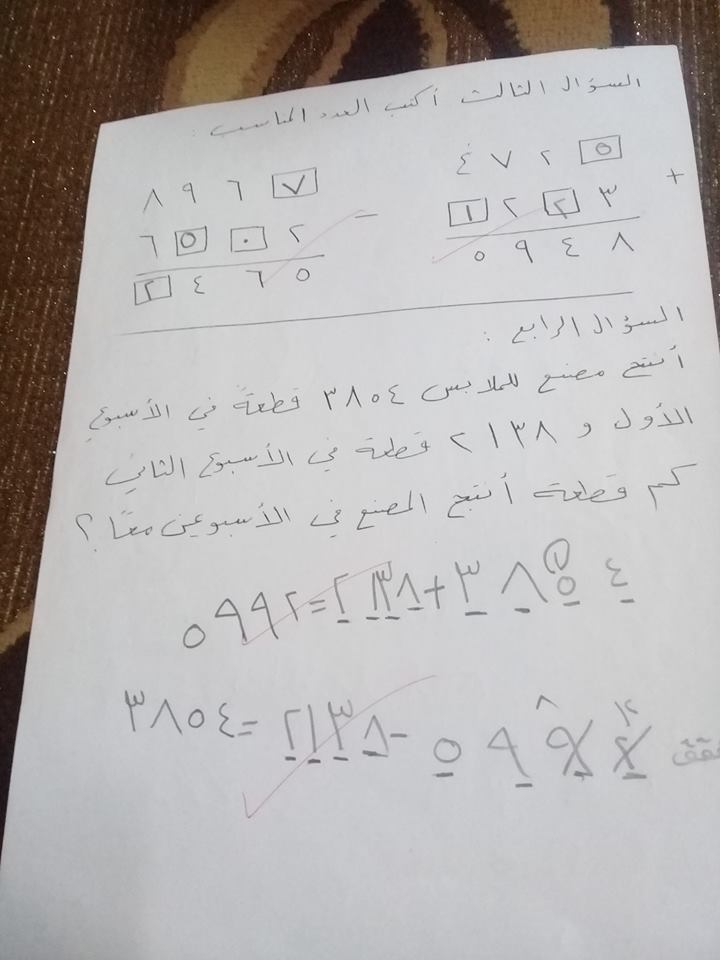 السؤال الثالث أكتب العدد المناسب :
٤ ٧ ٢ ٥
+
١ ٢ ٢ ٣
٥ ٩ ٤ ٨
٨ ٩ ٦ ٧
-
٦ ٥ ٠ ٢
٢ ٤ ٦ ٥
السؤال الرابع :
أنتج مصنع للملابس ٣٨٥٤ قطعة في الأسبوع
الأول و ٢١٣٨ قطعة في الأسبوع الثاني
كم قطعة أنتج المصنع في الأسبوعين معًا ؟
١
٥٩٩٢=٢١٣٨+٣٨٥٤
٨ ١٢
٣٨٥٤=٢١٣٨-٥٩٩٢